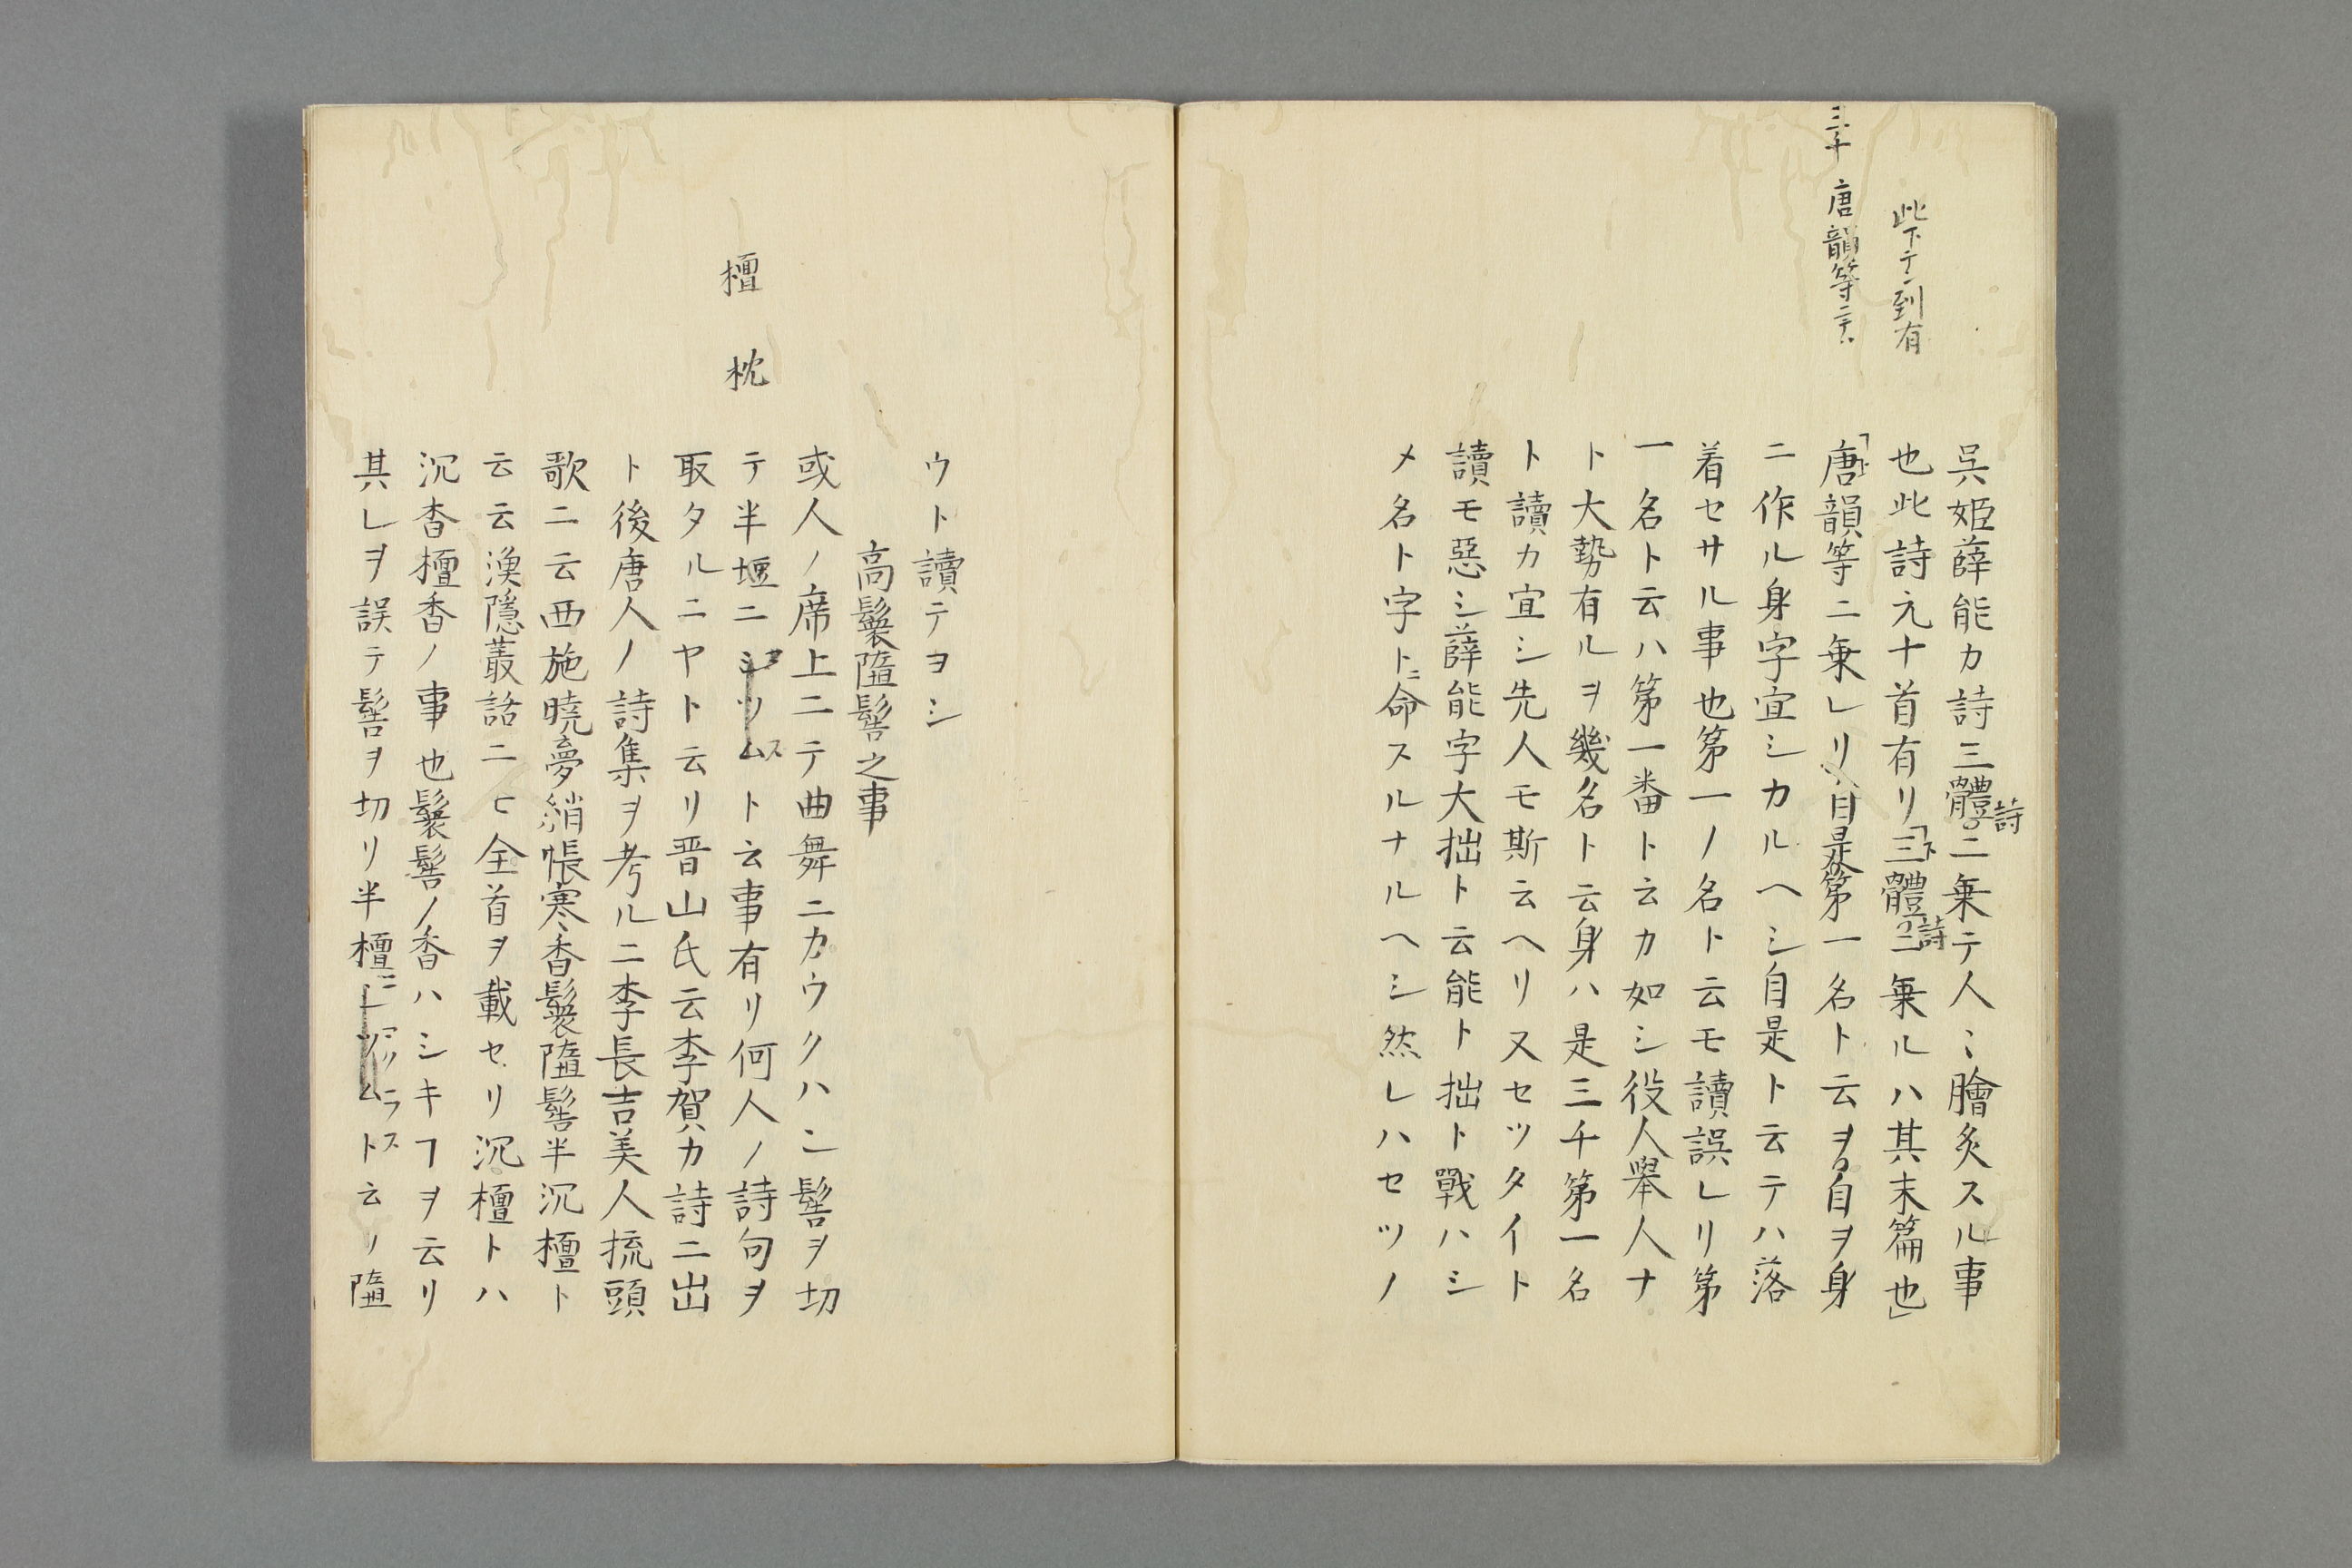 此下テン到有
三十 唐韻等ニテハ
呉姫薛能カ詩三體詩ニ乗テ人ミ膾炙スル事
也此詩元十首有リ「三體詩ニ乗ルハ其末篇也」
「唐韻等ニ乗レリ自是第一名ト云ヲ自ヲ身
ニ作ル身字宜シカルヘシ自是ト云テハ落
着セサル事也第一ノ名ト云モ讀誤レリ第
一名ト云ハ第一番ト云カ如シ役人舉人ナ
ト大勢有ルヲ幾名ト云身ハ是三千第一名
ト讀カ宜シ先人モ斯云ヘリ又セツタイト
讀モ惡シ薛能字大拙ト云能ト拙ト戰ハシ
メ名ト字トニ命スルナルヘシ然レハセツノ
ウト讀テヨシ
高鬟墮髻之事
檀 枕
或人ノ席上ニテ曲舞ニカウクハシ髻ヲ切
テ半堰ニシツムスト云事有リ何人ノ詩句ヲ
取タルニヤト云リ晋山氏云李賀カ詩ニ出
ト後唐人ノ詩集ヲ考ルニ李長吉美人梳頭
歌ニ云西施曉夢綃帳寒香鬟墮髻半沉檀ト
云云漁隱叢話ニヒ全首ヲ載セリ沉檀トハ
沉香檀香ノ事也鬟髻ノ香ハシキヿヲ云リ
其レヲ誤テ髻ヲ切リ半檀ニシツムト云リ墮